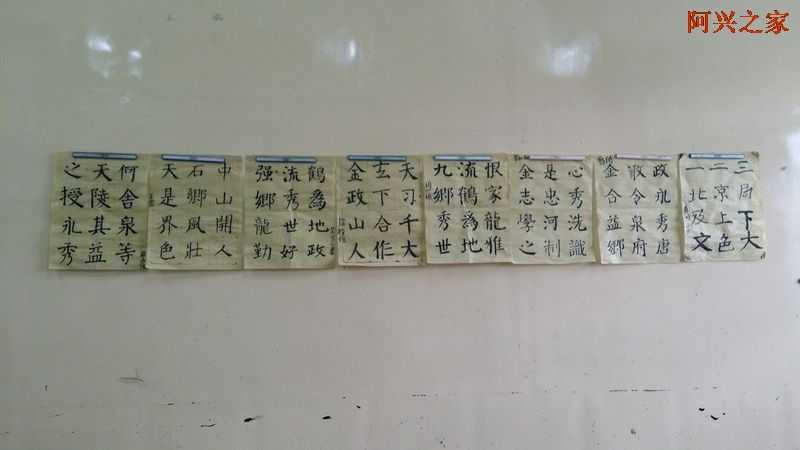 阿兴之家
三局下大
二京上色
一北及文
政永秀唐
令泉府
金合益鄉
心秀洗識
是忠河制
金志學之
恨家龍惟
流鶴為地
九鄉秀世
天习千大
玄下合作
金政山人
鶴為地政
流秀世好
强鄉龍勤
中山開人
石鄉風壯
天是界色
何舍泉等
天陵其益
之授永秀